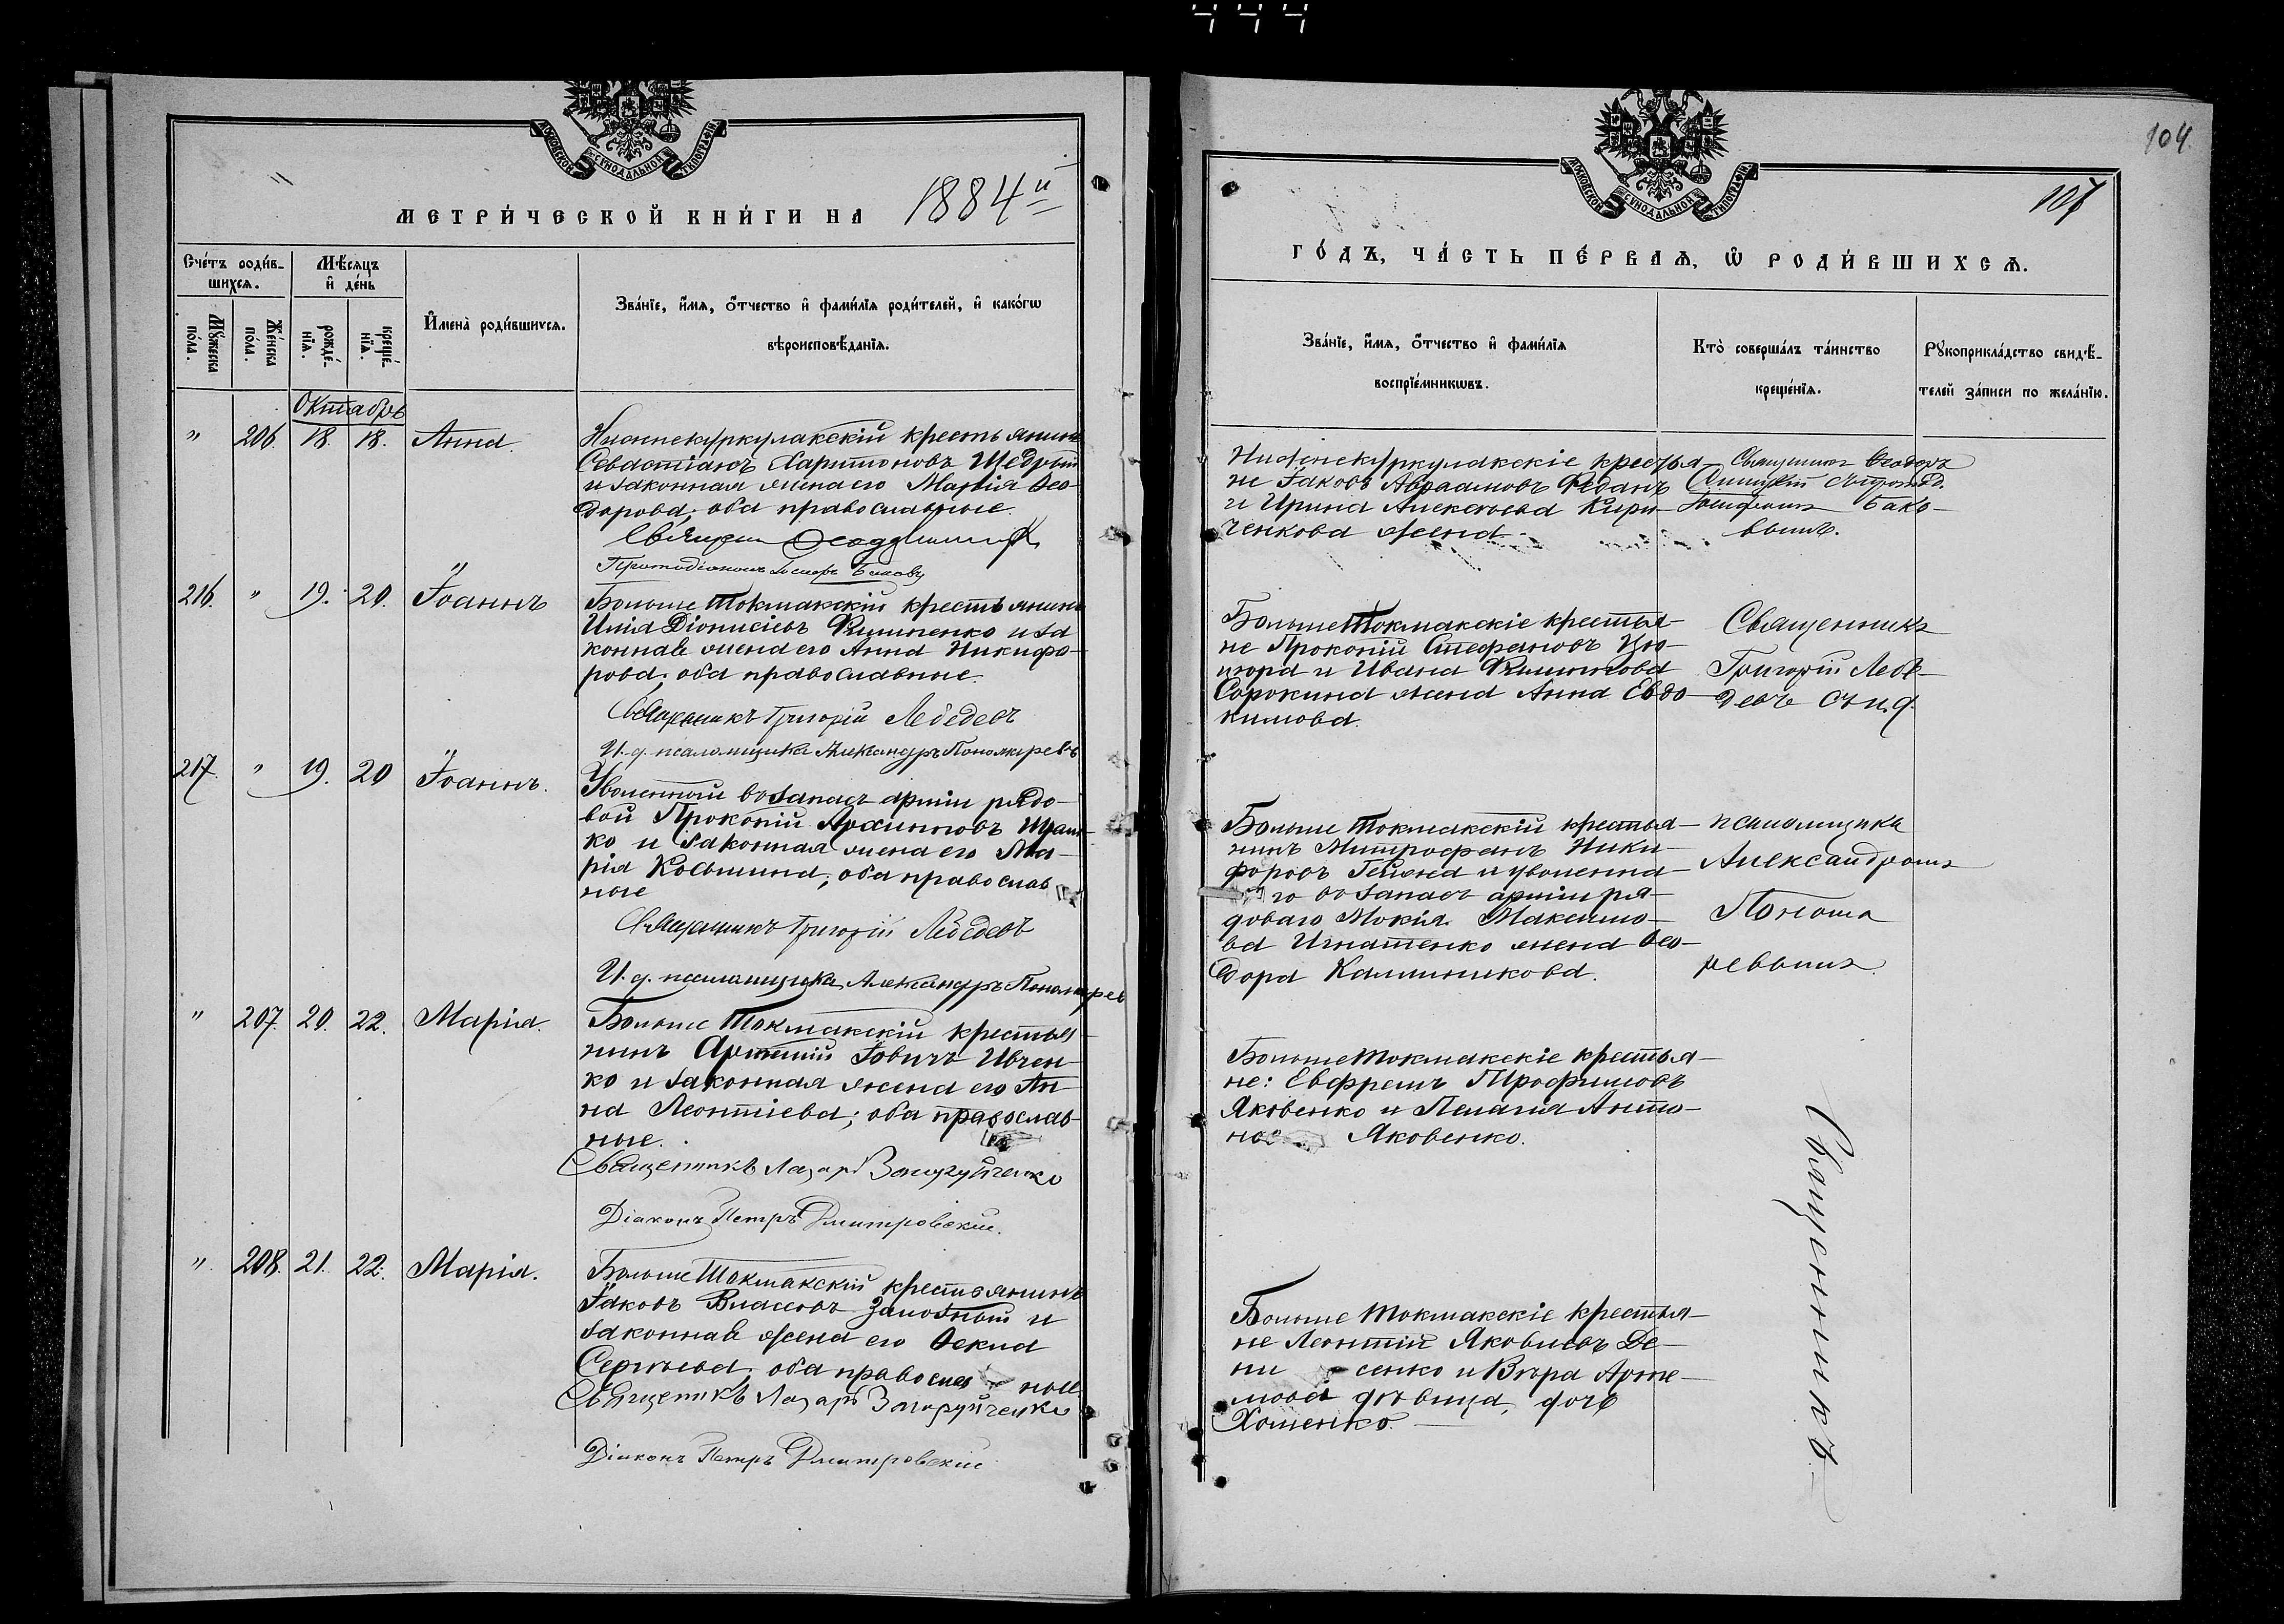 МОСКОВСКОЙ СѴНОДАЛЬНОЙ ТИПОГРАФІИ
МЕТРИ́ЧЕСКОЙ КНИ́ГИ НА 1884й
Сче́тъ роди́в-
шихсѧ.
Мѣ́сѧцъ
и҆ де́нь
Мꙋ́жеска
по́ла.
Же́нска
по́ла.
рожде́-
нїѧ.
креще́-
нїѧ.
И҆мена̀ роди́вшихсѧ.
Зва́нїе, и҆́мѧ, ѻ҆́тчество и҆ фами́лїѧ роди́телей, и҆ како́гѡ
вѣроисповѣ́данїѧ.
Октябрь
" 206. 18. 18. Анна.
Нижнекуркулакскій крестьянинъ
Севастіанъ Харитоновъ Щедрый
и законная жена его Марія Ѳео-
дорова; оба православные.
216. " 19. 20. Іоаннъ
Больше Токмакскій крестьянинъ
Илія Діонисіевъ Филипенко и за
конная жена его Анна Никифо-
рова; оба православные.
Священникъ Григорій Лебедевъ
И. д. псаломщика Александръ Пономаревъ
217. " 19. 20 Іоаннъ.
Уволенный въ запасъ арміи рядо-
вой Прокопій Архиповъ
ко и законная жена его Ма-
рія Косьмина; оба православ
ные
Священникъ Григорій Лебедевъ
И. д. псаломщика Александръ Пономарев
" 207. 20. 22. Марія.
Больше Токмакскій крестья
нинъ Артемій Іовичъ Ивчен-
ко и законная жена его Ан-
на Леонтіева; оба православ-
ные.
Священникъ Лазарь
Діаконъ Петръ Дмитровскій.
" 208. 21. 22. Марія.
Больше Токмакскій крестьянинъ
Іаковъ Власовъ и
законная жена его Ѳекла
Сергѣева, оба православ ные.
Священникъ Лазарь
Діаконъ Петръ Дмитровскій
104.
107
МОСКОВСКОЙ СѴНОДАЛЬНОЙ ТИПОГРАФІИ
ГО́ДЪ, ЧА́СТЬ ПЕ́РВАѦ, Ѡ҆ РОДИ́ВШИХСѦ.
Зва́нїе, и҆́мѧ, ѻ҆́тчество и҆ фами́лїѧ
воспрїе́мникѡвъ.
Кто̀ соверша́лъ та́инство
креще́нїѧ.
Рꙋкоприкла́дство свидѣ́-
телей за́писи по жела́нїю.
Нижнекуркулакскіе крестья-
не Іаковъ Авраамовъ Феданъ
и Ирина Алексѣева Кири-
ченкова жена.
Священникъ Ѳеодоръ
Больше Токмакскіе крестья-
не Прокопій Стефановъ Цю-
пюра и Ивана Филиппова
Сорокина жена Анна Евдо-
кимова.
Священникъ
Григорій Лебе-
девъ съ и. д.
Больше Токмакскій крестья-
нинъ Митрофанъ Ники-
форовъ и уволенна-
го въ запасъ арміи ря-
доваго Мокія Максимо-
ва Игнатенко жена Ѳео-
дора Калинникова.
псаломщика
Александромъ
Понома
ревымъ
Больше Токмакскіе крестья-
не: Евфремъ Трофимовъ
Яковенко и Пелагія Анто-
нов Яковенко.
Священникъ
Больше Токмакскіе крестья-
не Леонтій Яковлевъ Де-
ни сенко и Вѣра Арте-
мова дѣвица, дочь
Хоменко.